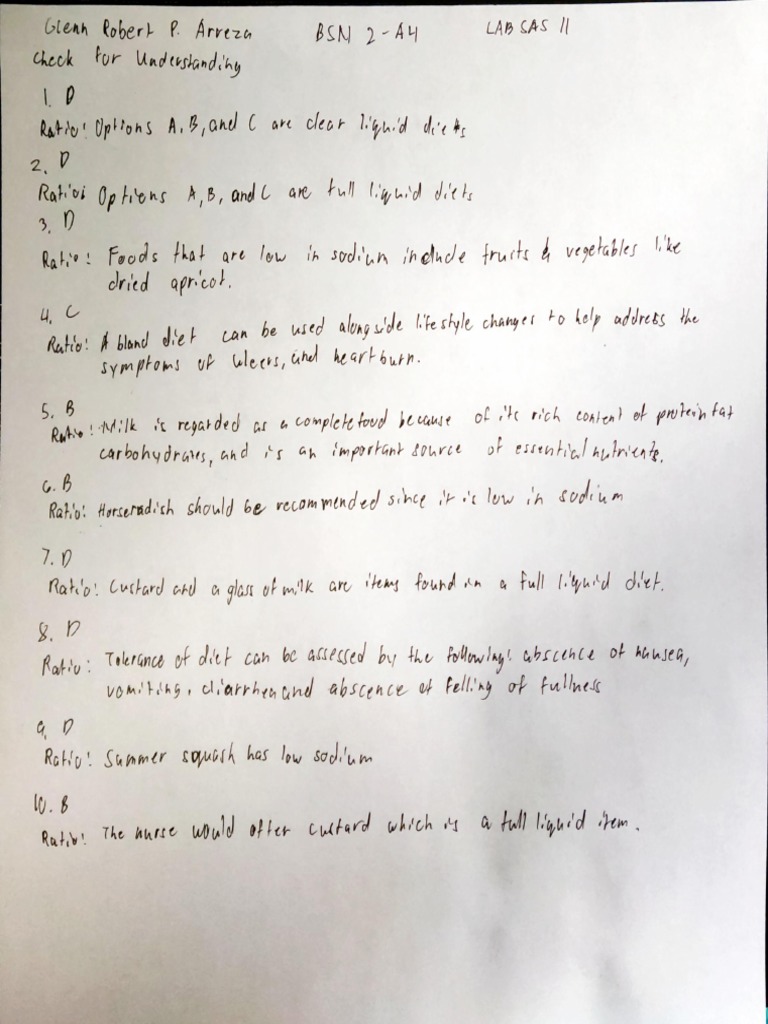 Glenn Robert P. Arreza BSN 2-A4 LAB SAS 11
Check for Understanding
1. D
Ratio: Options A, B, and C are clear liquid diets
2. D
Ratio: Options A, B, and C are full liquid diets
3. D
Ratio: Foods that are low in sodium include fruits & vegetables like
dried apricot.
4. C
Ratio: A bland diet can be used alongside lifestyle changes to help address the
symptoms of ulcers, and heartburn.
5. B
Ratio: Milk is regarded as a complete food because of its rich content of protein fat
carbohydrates, and is an important source of essential nutrients.
6. B
Ratio: Horseradish should be recommended since it is low in sodium
7. D
Ratio: Custard and a glass of milk are items found in a full liquid diet.
8. D
Ratio: Tolerance of diet can be assessed by the following: abscence of nausea,
vomiting, diarrhea and abscence of felling of fullness
9. D
Ratio: Summer squash has low sodium
10. B
Ratio: The nurse would offer custard which is a full liquid item.